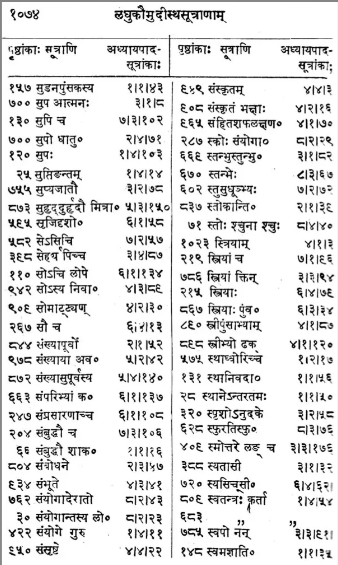 १०७४
लघुकौमुदीस्थसूत्राणाम्
पृष्ठांकाः सूत्राणि अध्यायपाद-
सूत्रांकाः
१५७ सुडनपुंसकस्य १।१।४३
७०० सुप आत्मनः ३।१।८
१३० सुपि च ७।३।१०२
७०० सुपो धातु० २।४।७१
१२० सुपः १।४।१०३
२५ सुप्तिङन्तम् १।४।१४
७५५ सुप्यजातौ ३।२।७८
८७३ सुहृद्दुर्हृदौ मित्रा० ५।३।१५०
५९५ सृजिदृशो० ६।१।५८
५८२ सेऽसिचि ७।२।५७
३९८ सेर्ह्यपिच्च ३।४।८७
११० सोऽचि लोपे ६।१।१३४
९४२ सोऽस्य निवा० ४।३।८९
९०९ सोमाट्ट्यण् ४।२।३०
२६७ सौ च ६।४।१३
८४४ संख्यापूर्वो २।१।५२
९७८ संख्याया अव० ५।२।४२
८७२ संख्यासुपूर्वस्य ५।४।१४०
६६३ संपरिभ्यां क० ६।१।१३७
२४७ संप्रसारणाच्च ६।१।१०८
२०४ संबुद्धौ च ७।३।१०६
६६ संबुद्धौ शाक० १।१।१६
८०४ संबोधने २।३।४७
९३४ संभूते ४।३।४१
७६२ संयोगादेरातो ८।२।४३
३० संयोगान्तस्य लो० ८।२।२३
४२२ संयोगे गुरु १।४।११
९५० संसृष्टे ४।४।२२
पृष्ठांकाः सूत्राणि अध्यायपाद-
सूत्रांकाः
९४९ संस्कृतम् ४।४।३
९०८ संस्कृतं भक्षाः ४।२।१६
९६५ संहितशफलक्षण० ४।१।७०
२८७ स्कोः संयोगा० ८।२।२९
६६९ स्तन्भुस्तुन्भु० ३।१।८२
६७० स्तन्भेः ८।३।६७
६०२ स्तुसुधूञ्भ्यः ७।२।७२
८३७ स्तोकान्ति० २।१।३९
७१ स्तोः श्चुना श्चुः ८।४।४०
१०२३ स्त्रियाम् ४।१।३
२१९ स्त्रियां च ७।१।९६
७८६ स्त्रियां क्तिन् ३।३।९४
२१५ स्त्रियाः ६।४।७९
८६७ स्त्रियाः पुंव० ६।३।३४
८९० स्त्रीपुंसाभ्याम् ४।१।८७
८९८ स्त्रीभ्यो ढक् ४।१।१२०
५७५ स्थाघ्वोरिच्च १।२।१७
१३१ स्थानिवदा० १।१।५६
२८ स्थानेऽन्तरतमः १।१।५०
३२० स्पृशोऽनुदके ३।२।५८
६२८ स्फुरतिस्फु० ८।३।७६
४०९ स्मोत्तरे लङ् च ३।३।१७६
३८८ स्यतासी ३।१।३३
७२० स्यसिच्सी० ६।४।६२
८०९ स्वतन्त्रः कर्ता १।४।५४
६८३ ,, ,,
७८५ स्वपो नन् ३।३।९१
१४८ स्वमज्ञाति० १।१।३५